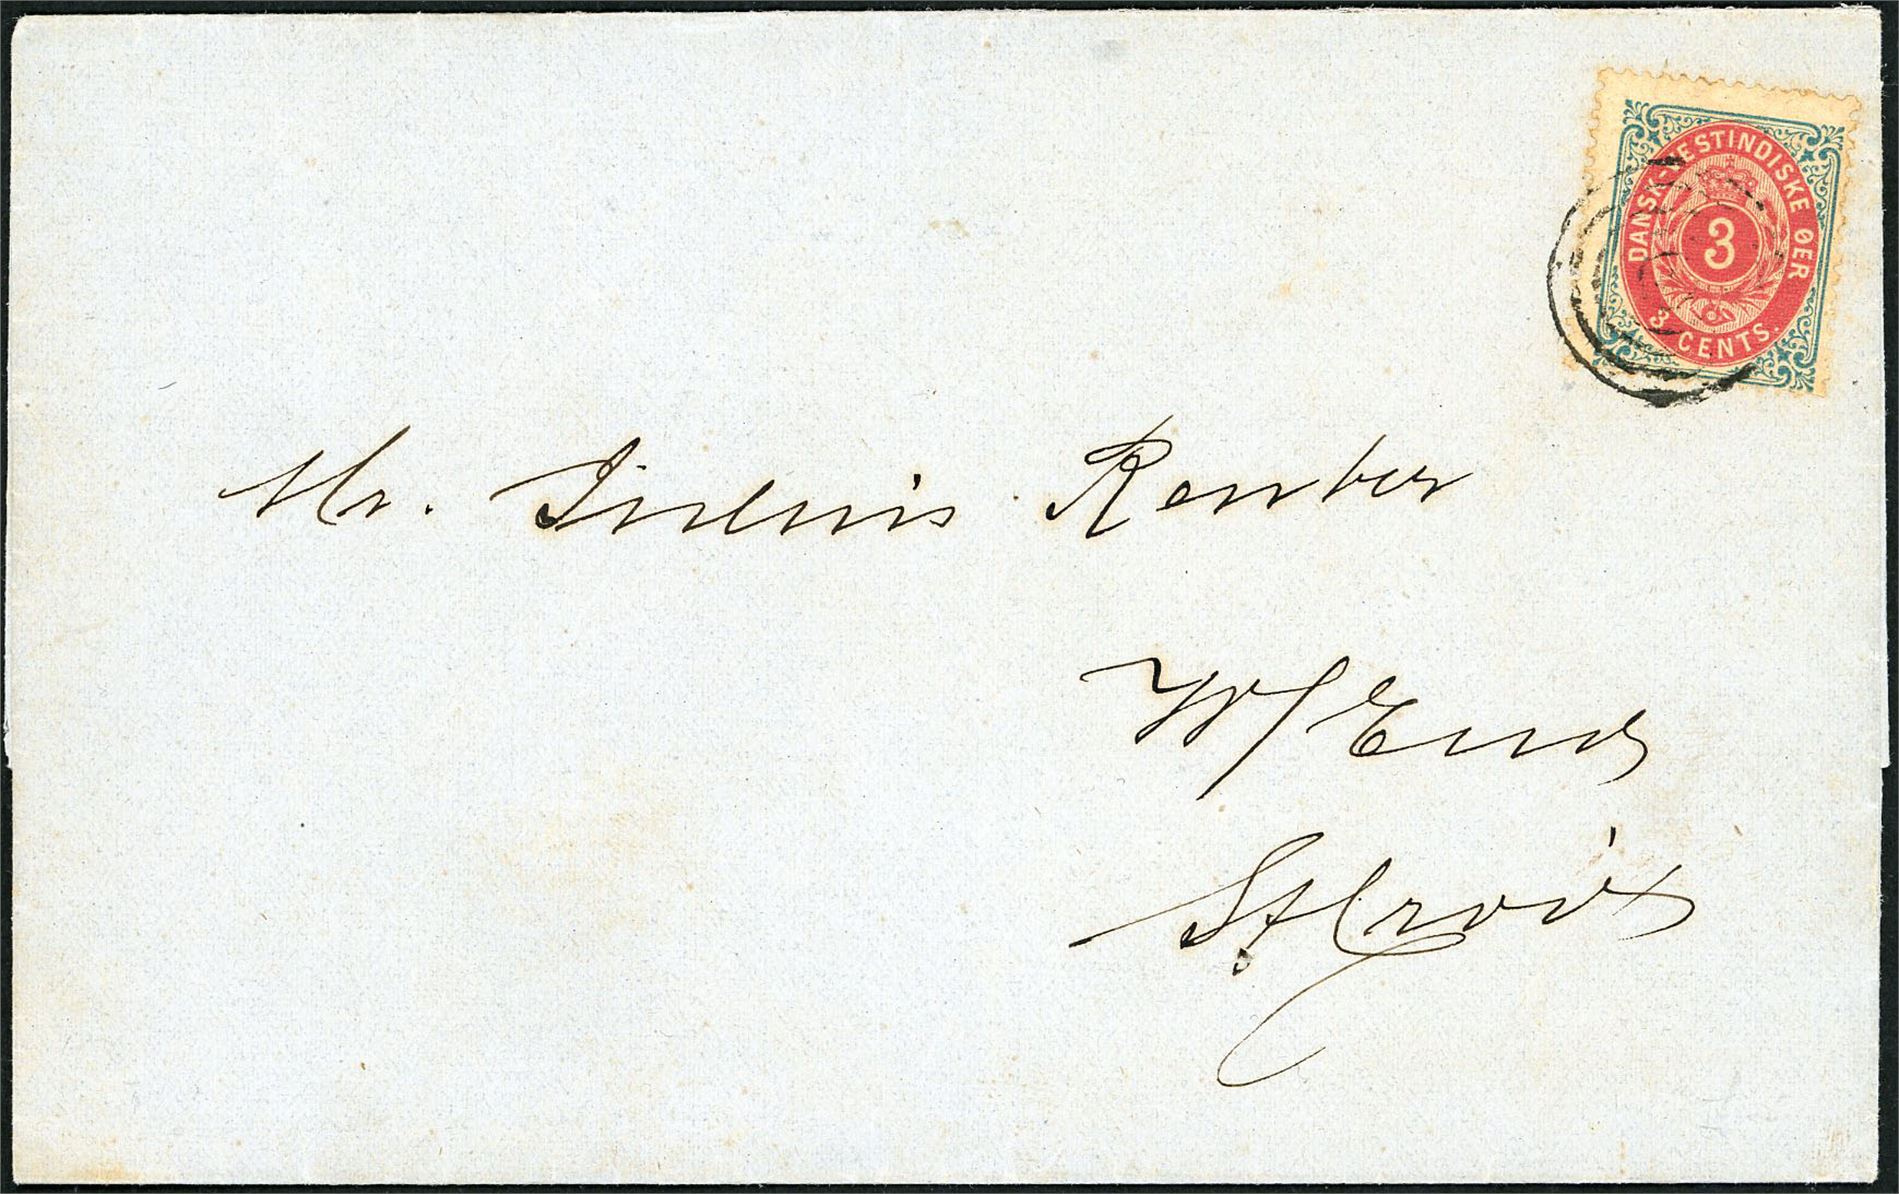 DANSK-VESTINDISKE ØER
3
3 CENTS.
Mr.
W/End
St Croix